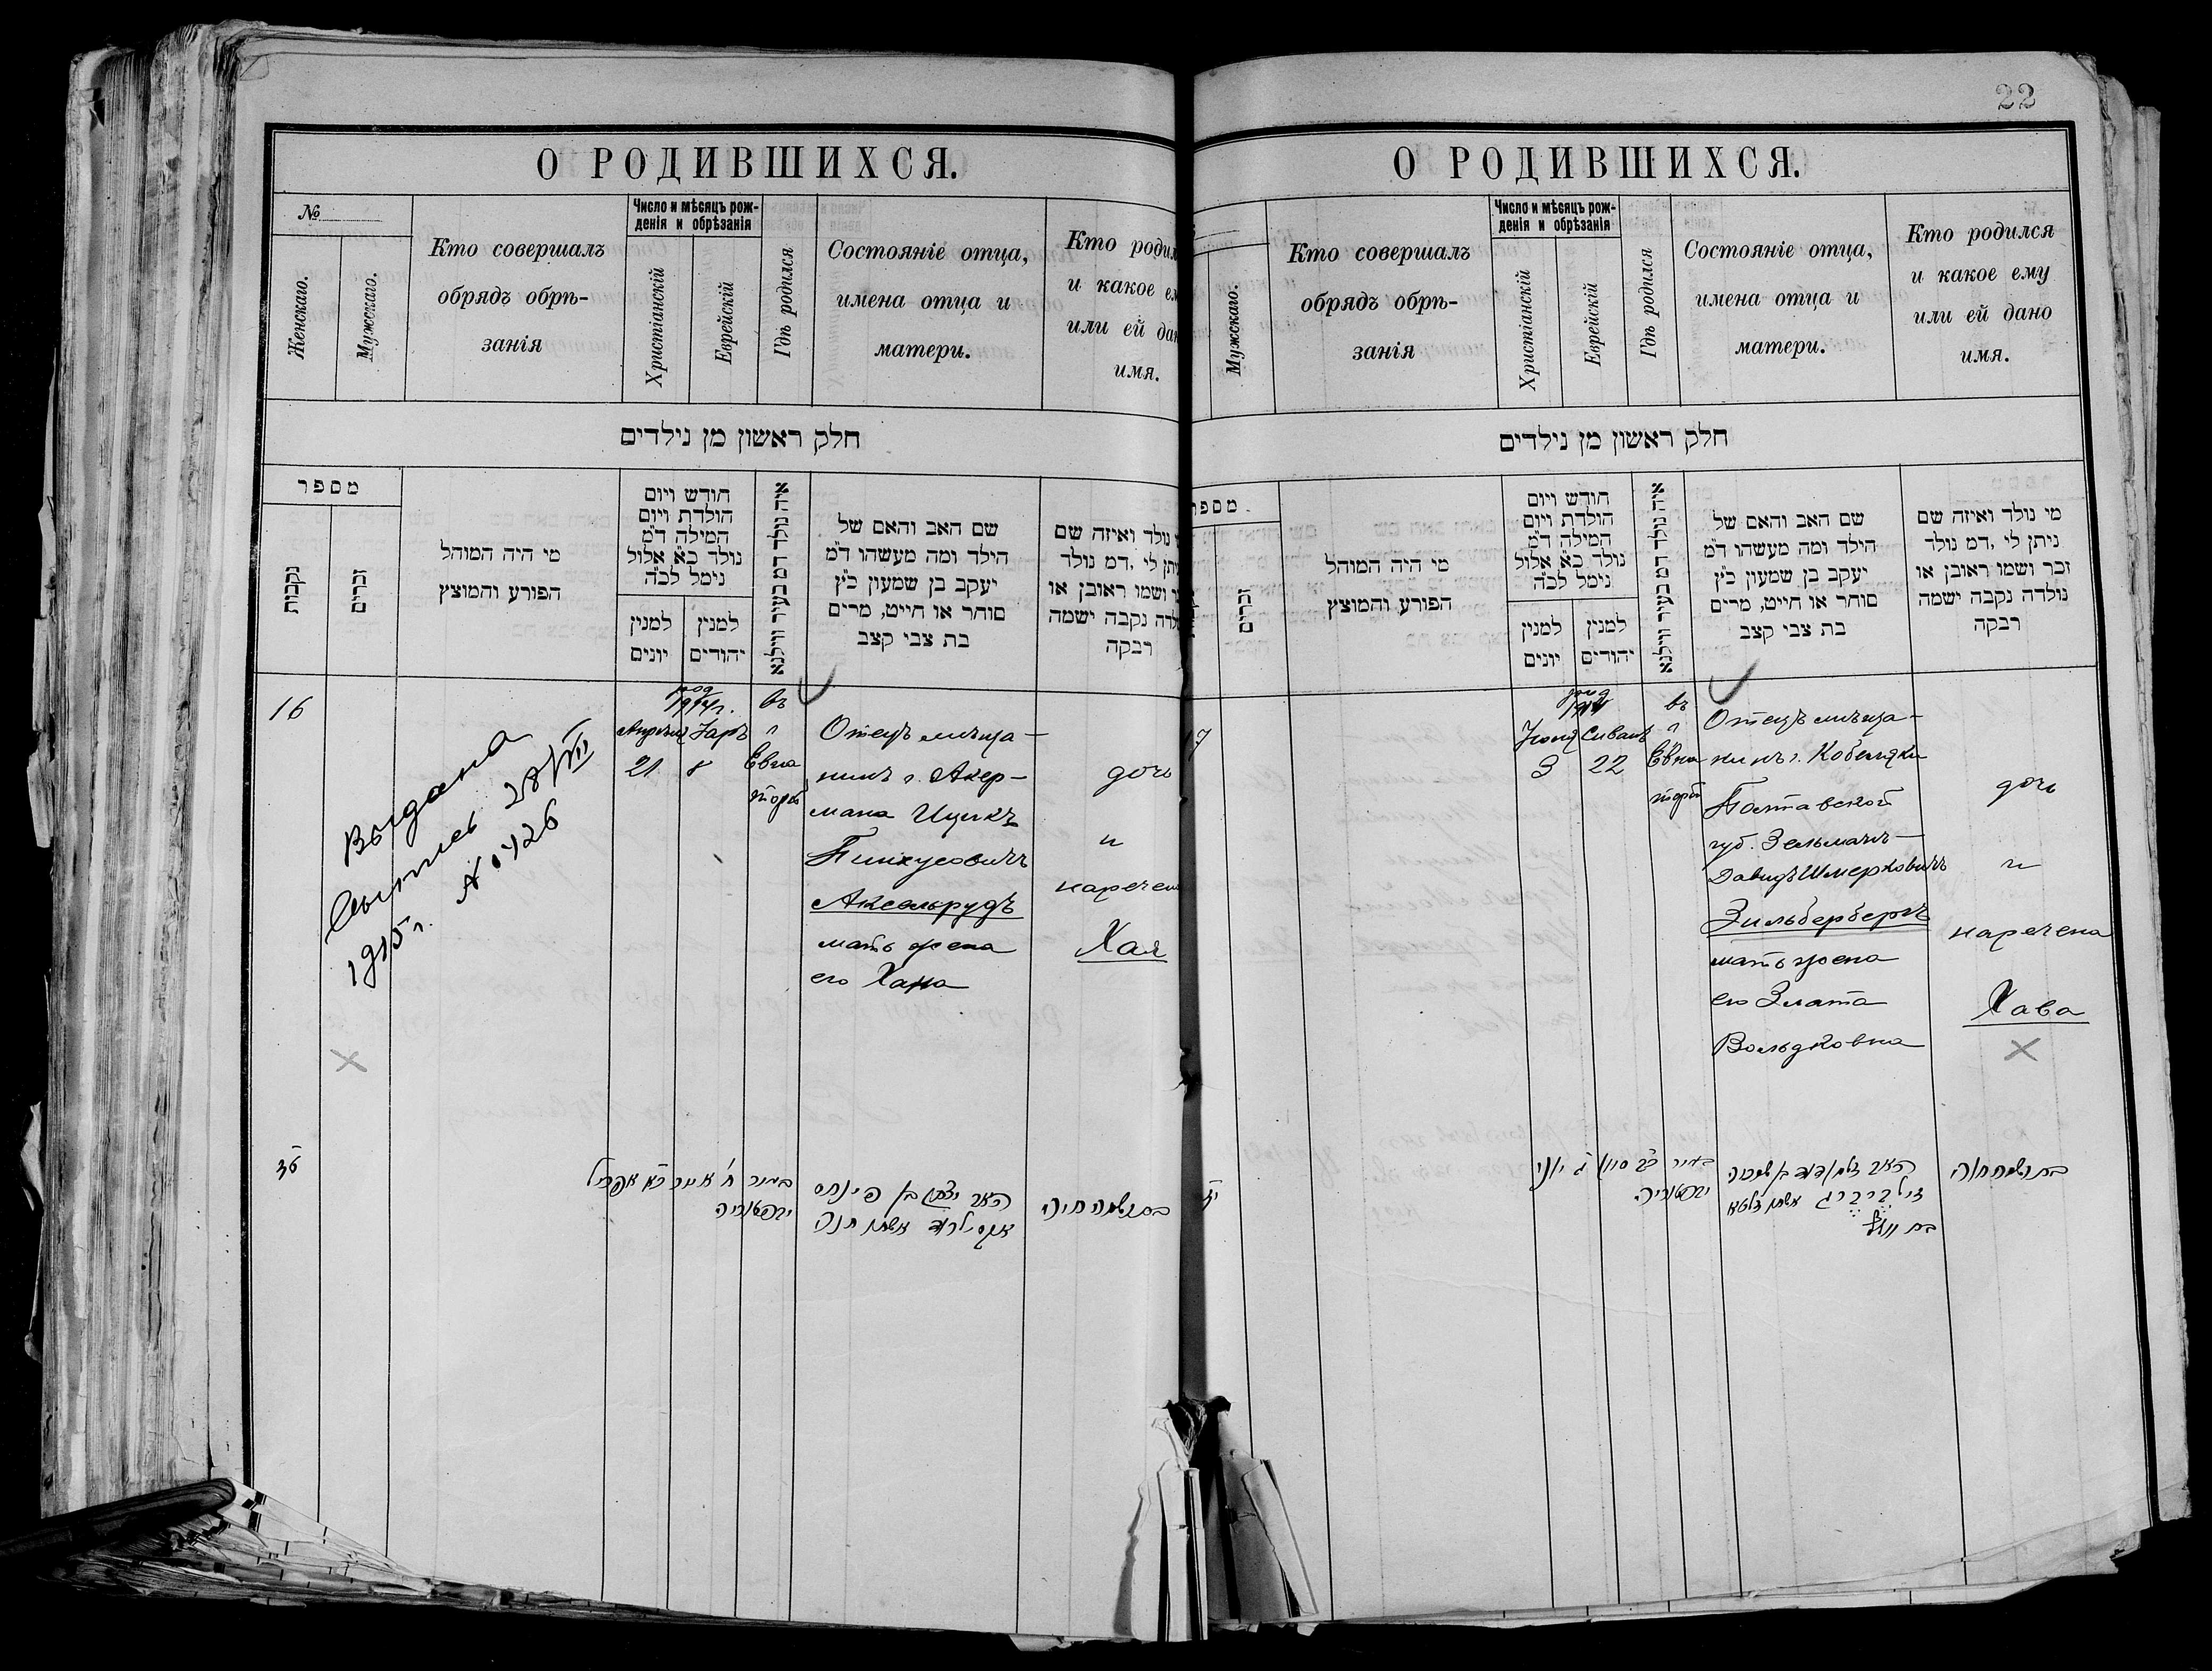 О РОДИВШИХСЯ.
№
Женскаго.
Мужскаго.
Кто совершалъ
обрядъ обрѣ-
занія
Число и мѣсяцъ рож-
денія и обрѣзанія
Христіанскій
Еврейскій
Гдѣ родился
Состояніе отца,
имена отца и
матери.
Кто родил
и какое ем
или ей дан
имя.
חלק ראשון מן נילדים
מספר
נקבות
זכרים
מי היה המוהל
הפורע והמוצץ
חודש ויום
הולדת ויום
המילה ד"מ
נולד כ"א אלול
נימל לכ"ה
למנין
יונים
למנין
יהודים
איה נולד דמ בעיר ווילנא
שם האב והאם של
הילד ומה מעשהו ד"מ
יעקב בן שמעון כ"ץ
סוחר או חייט, מרים
בת צבי קצב
נולד ואיזה שם
יתן לי, דמ נולד
ושמו ראובן או
לדה נקבה ישמה
רבקה
16
Выдана
1915 г. № 426
28/VII
род
1914 г.
Апрѣля
21
Іаръ
8
въ
г
Евпа
торіи
Отецъ мѣща-
нинъ г. Акер-
мана Ицикъ
Пинхусовичъ
Аксельрудъ
мать жена
его Хана
дочь
и
наречен
Хая
האב יצחק בן פינחס
אקסילרוד אשתו חנה
בת ושמה חיה
22
О РОДИВШИХСЯ.
Мужскаго.
Кто совершалъ
обрядъ обрѣ-
занія
Число и мѣсяцъ рож-
денія и обрѣзанія
Христіанскій
Еврейскій
Гдѣ родился
Состояніе отца,
имена отца и
матери.
Кто родился
и какое ему
или ей дано
имя.
חלק ראשון מן נילדים
מספר
זכרים
מי היה המוהל
הפורע והמוצץ
חודש ויום
הולדת ויום
המילה ד"מ
נולד כ"א אלול
נימל לכ"ה
למנין
יונים
למנין
יהודים
איה נולד דמ בעיר ווילנא
שם האב והאם של
הילד ומה מעשהו ד"מ
יעקב בן שמעון כ"ץ
סוחר או חייט, מרים
בת צבי קצב
מי נולד ואיזה שם
ניתן לי, דמ נולד
זכר ושמו ראובן או
נולדה נקבה ישמה
רבקה
7
род
1914
Іюня
3
Сиванъ
22
въ
г
Евпа
торіи
Отецъ мѣща-
нинъ г. Кобеляки
Полтавской
губ. Зельманъ-
Давидъ Шмерковичъ
Зильбербергъ
мать жена
его Злата
Вольдковна
дочь
и
наречена
Хава
זילברברג אשתו זלטא
בת ושמה חוה